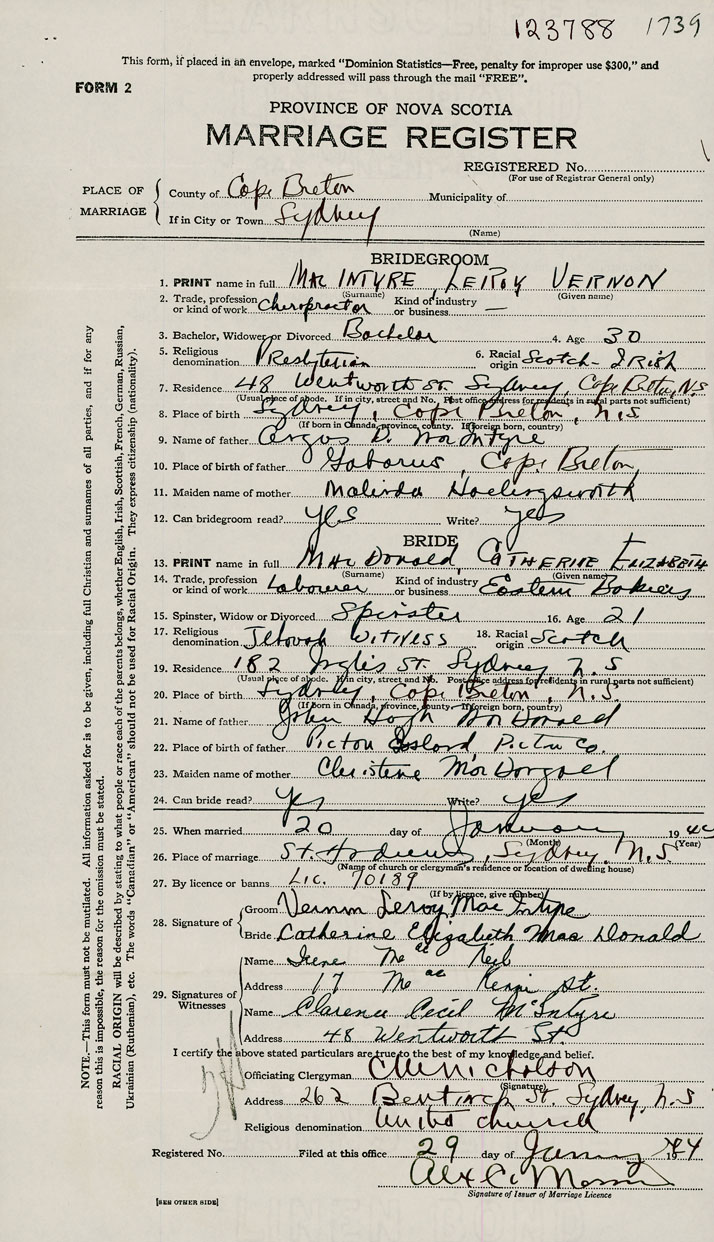 123788 1739
This form, if placed in an envelope, marked "Dominion Statistics—Free, penalty for improper use $300," and
properly addressed will pass through the mail "FREE".
FORM 2
PROVINCE OF NOVA SCOTIA
MARRIAGE REGISTER
REGISTERED No.
(For use of Registrar General only)
PLACE OF MARRIAGE
County of Cape Breton Municipality of
If in City or Town Sydney
(Name)
BRIDEGROOM
1. PRINT name in full MacINTYRE, LEROY VERNON
(Surname) (Given name)
2. Trade, profession or kind of work Chiropractor Kind of industry or business —
3. Bachelor, Widower or Divorced Bachelor 4. Age 30
5. Religious denomination Presbyterian 6. Racial origin Scotch-Irish
7. Residence 48 Wentworth St. Sydney, Cape Breton, N.S
(Usual place of abode. If in city, street and No. Post office address for residents in rural parts not sufficient)
8. Place of birth Sydney, Cape Breton, N.S.
(If born in Canada, province, county. If foreign born, country)
9. Name of father Angus D. MacIntyre
10. Place of birth of father Gabarus, Cape Breton
11. Maiden name of mother Malinda Hollingsworth
12. Can bridegroom read? yes Write? yes
BRIDE
13. PRINT name in full MacDonald, CATHERINE ELIZABETH
(Surname) (Given name)
14. Trade, profession or kind of work Labourer Kind of industry or business Eastern Bakeries
15. Spinster, Widow or Divorced Spinster 16. Age 21
17. Religious denomination Jehovah WITNESS 18. Racial origin Scotch
19. Residence 182 Inglis St. Sydney N.S
(Usual place of abode. If in city, street and No. Post office address for residents in rural parts not sufficient)
20. Place of birth Sydney, Cape Breton, N.S.
(If born in Canada, province, county. If foreign born, country)
21. Name of father John Hugh MacDonald
22. Place of birth of father Pictou Island Pictou Co.
23. Maiden name of mother Christene MacDougal
24. Can bride read? Yes Write? yes
25. When married 20 day of January 1944
(Month) (Year)
26. Place of marriage St. Andrews, Sydney, N.S.
(Name of church or clergyman's residence or location of dwelling house)
27. By licence or banns Lic. 70189
(If by licence, give number)
28. Signature of
Groom Vernon Leroy MacIntyre
Bride Catherine Elizabeth MacDonald
29. Signatures of Witnesses
Name Irene Mac Neil
Address 17 Mac St.
Name Clarence Cecil McIntyre
Address 48 Wentworth St.
I certify the above stated particulars are true to the best of my knowledge and belief.
Officiating Clergyman Nicholson
(Signature)
Address 262 Bentinck St. Sydney, N.S
Religious denomination United Church
Registered No. Filed at this office 29 day of January
Signature of Issuer of Marriage Licence
[SEE OTHER SIDE]
NOTE.—This form must not be mutilated. All information asked for is to be given, including full Christian and surnames of all parties, and if for any
reason this is impossible, the reason for the omission must be stated.
RACIAL ORIGIN will be described by stating to what people or race each of the parents belongs, whether English, Irish, Scottish, French, German, Russian,
Ukrainian (Ruthenian), etc. The words "Canadian" or "American" should not be used for Racial Origin. They express citizenship (nationality).